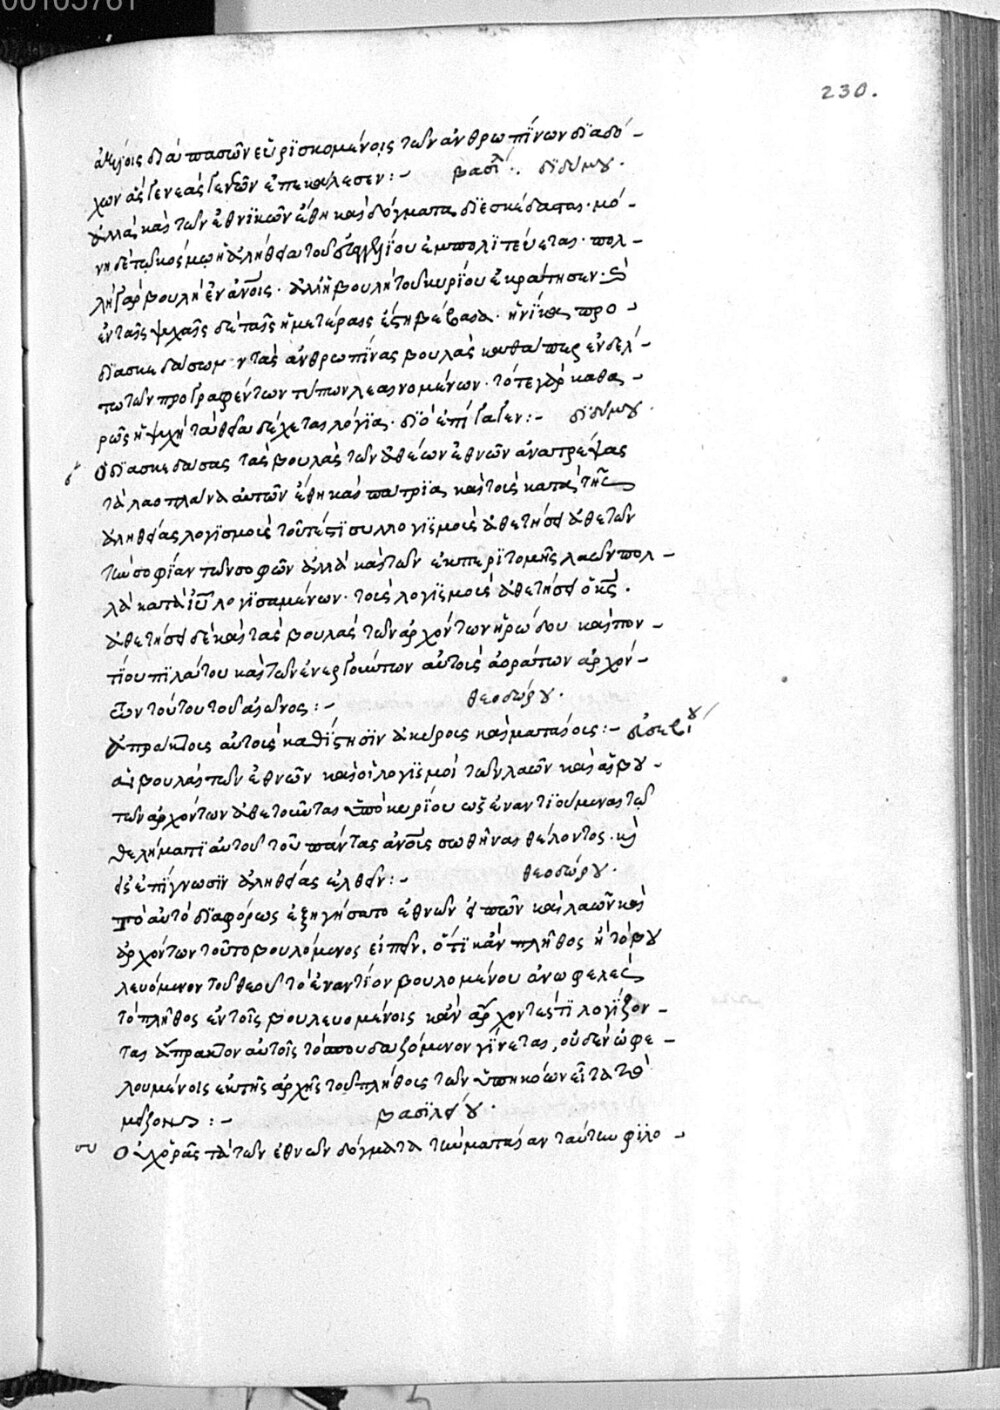 00105761
230.
διὰ πασῶν εὑρισκομένοις τῶν ἀνθρωπίνων διαδό-
χων ἃς γενεὰς γενεῶν ἐπεκάλεσεν :- βασιλ. διδύμου.
ἀλλὰ καὶ τῶν ἐθνικῶν ἔθη καὶ δόγματα διεσκέδασται. μό-
νη δὲ τῷ κόσμῳ ἡ ἀλήθεια τοῦ εὐαγγελίου ἐμπολιτεύεται. πολ-
λὴ γὰρ βουλὴ ἐν ἀνοις. ἀλλ' ἡ βουλὴ τοῦ κυρίου ἐκράτησεν. καὶ
ἐν ταῖς ψυχαῖς δὲ ταῖς ἡμετέραις ἔστη βέβαια. ἡνίκα προ-
διασκεδάσωμεν τὰς ἀνθρωπίνας βουλὰς καθάπερ ἐν δέλ-
τω τῶν προγραφέντων τύπων λεαινομένων. τότε γὰρ καθα-
ρῶς ἡ ψυχὴ τὰ θεῖα δέχεται λόγια. διὸ ἐπήγαγεν :- διδύμου.
ὁ διασκεδάσας τὰς βουλὰς τῶν ἀθέων ἐθνῶν ἀνατρέψας
τὰ λαοπλάνα αὐτῶν ἔθη καὶ πάτρια καὶ τοῖς κατὰ τῆς
ἀληθείας λογισμοῖς τουτέστι συλλογισμοῖς ἀθετήσει ἀθετῶν
τὴν σοφίαν τῶν σοφῶν ἀλλὰ καὶ τῶν ἐκ περιτομῆς λαῶν πολ-
λὰ κατὰ ιυ λογισαμένων. τοὺς λογισμοὺς ἀθετήσει ὁ κς.
ἀθετήσει δὲ καὶ τὰς βουλὰς τῶν ἀρχόντων ἡρώδου καὶ πον-
τίου πιλάτου καὶ τῶν ἐνεργούντων αὐτοῖς ἀοράτων ἀρχόν-
των τούτου τοῦ αἰῶνος :- θεοδώρου.
ἀπράκτους αὐτοὺς καθίστησιν ἀκύρους καὶ ματαίους :- εὐσεβίου
αἱ βουλαὶ τῶν ἐθνῶν καὶ οἱ λογισμοὶ τῶν λαῶν καὶ αἱ βου-
τῶν ἀρχόντων ἀθετοῦνται ὑπὸ κυρίου ὡς ἐναντιούμεναι τῷ
θελήματι αὐτοῦ τοῦ πάντας ἀνους σωθῆναι θέλοντος. καὶ
εἰς ἐπίγνωσιν ἀληθείας ἐλθεῖν :- θεοδώρου.
Τὸ αὐτὸ διαφόρως ἐξηγήσατο ἐθνῶν εἰπὼν καὶ λαῶν καὶ
ἀρχόντων τοῦτο βουλόμενος εἰπεῖν. ὅτι κἂν πλῆθος ἢ τὸ βου
λευόμενον τοῦ θεοῦ τὸ ἐναντίον βουλομένου ἀνωφελὲς
τὸ πλῆθος ἐν τοῖς βουλευομένοις κἂν ἄρχοντές τι λογίζον-
ται ἄπρακτον αὐτοῖς τὸ σπουδαζόμενον γίνεται, οὐδὲν ὠφε-
λουμένοις ἐκ τῆς ἀρχῆς τοῦ πλήθους τῶν ὑπηκόων εἶτα τὸ
μεῖζον :- βασιλείου.
Οὐχ ὁρᾶς τὰ τῶν ἐθνῶν δόγματα τὴν ματαίαν ταύτην φιλο-